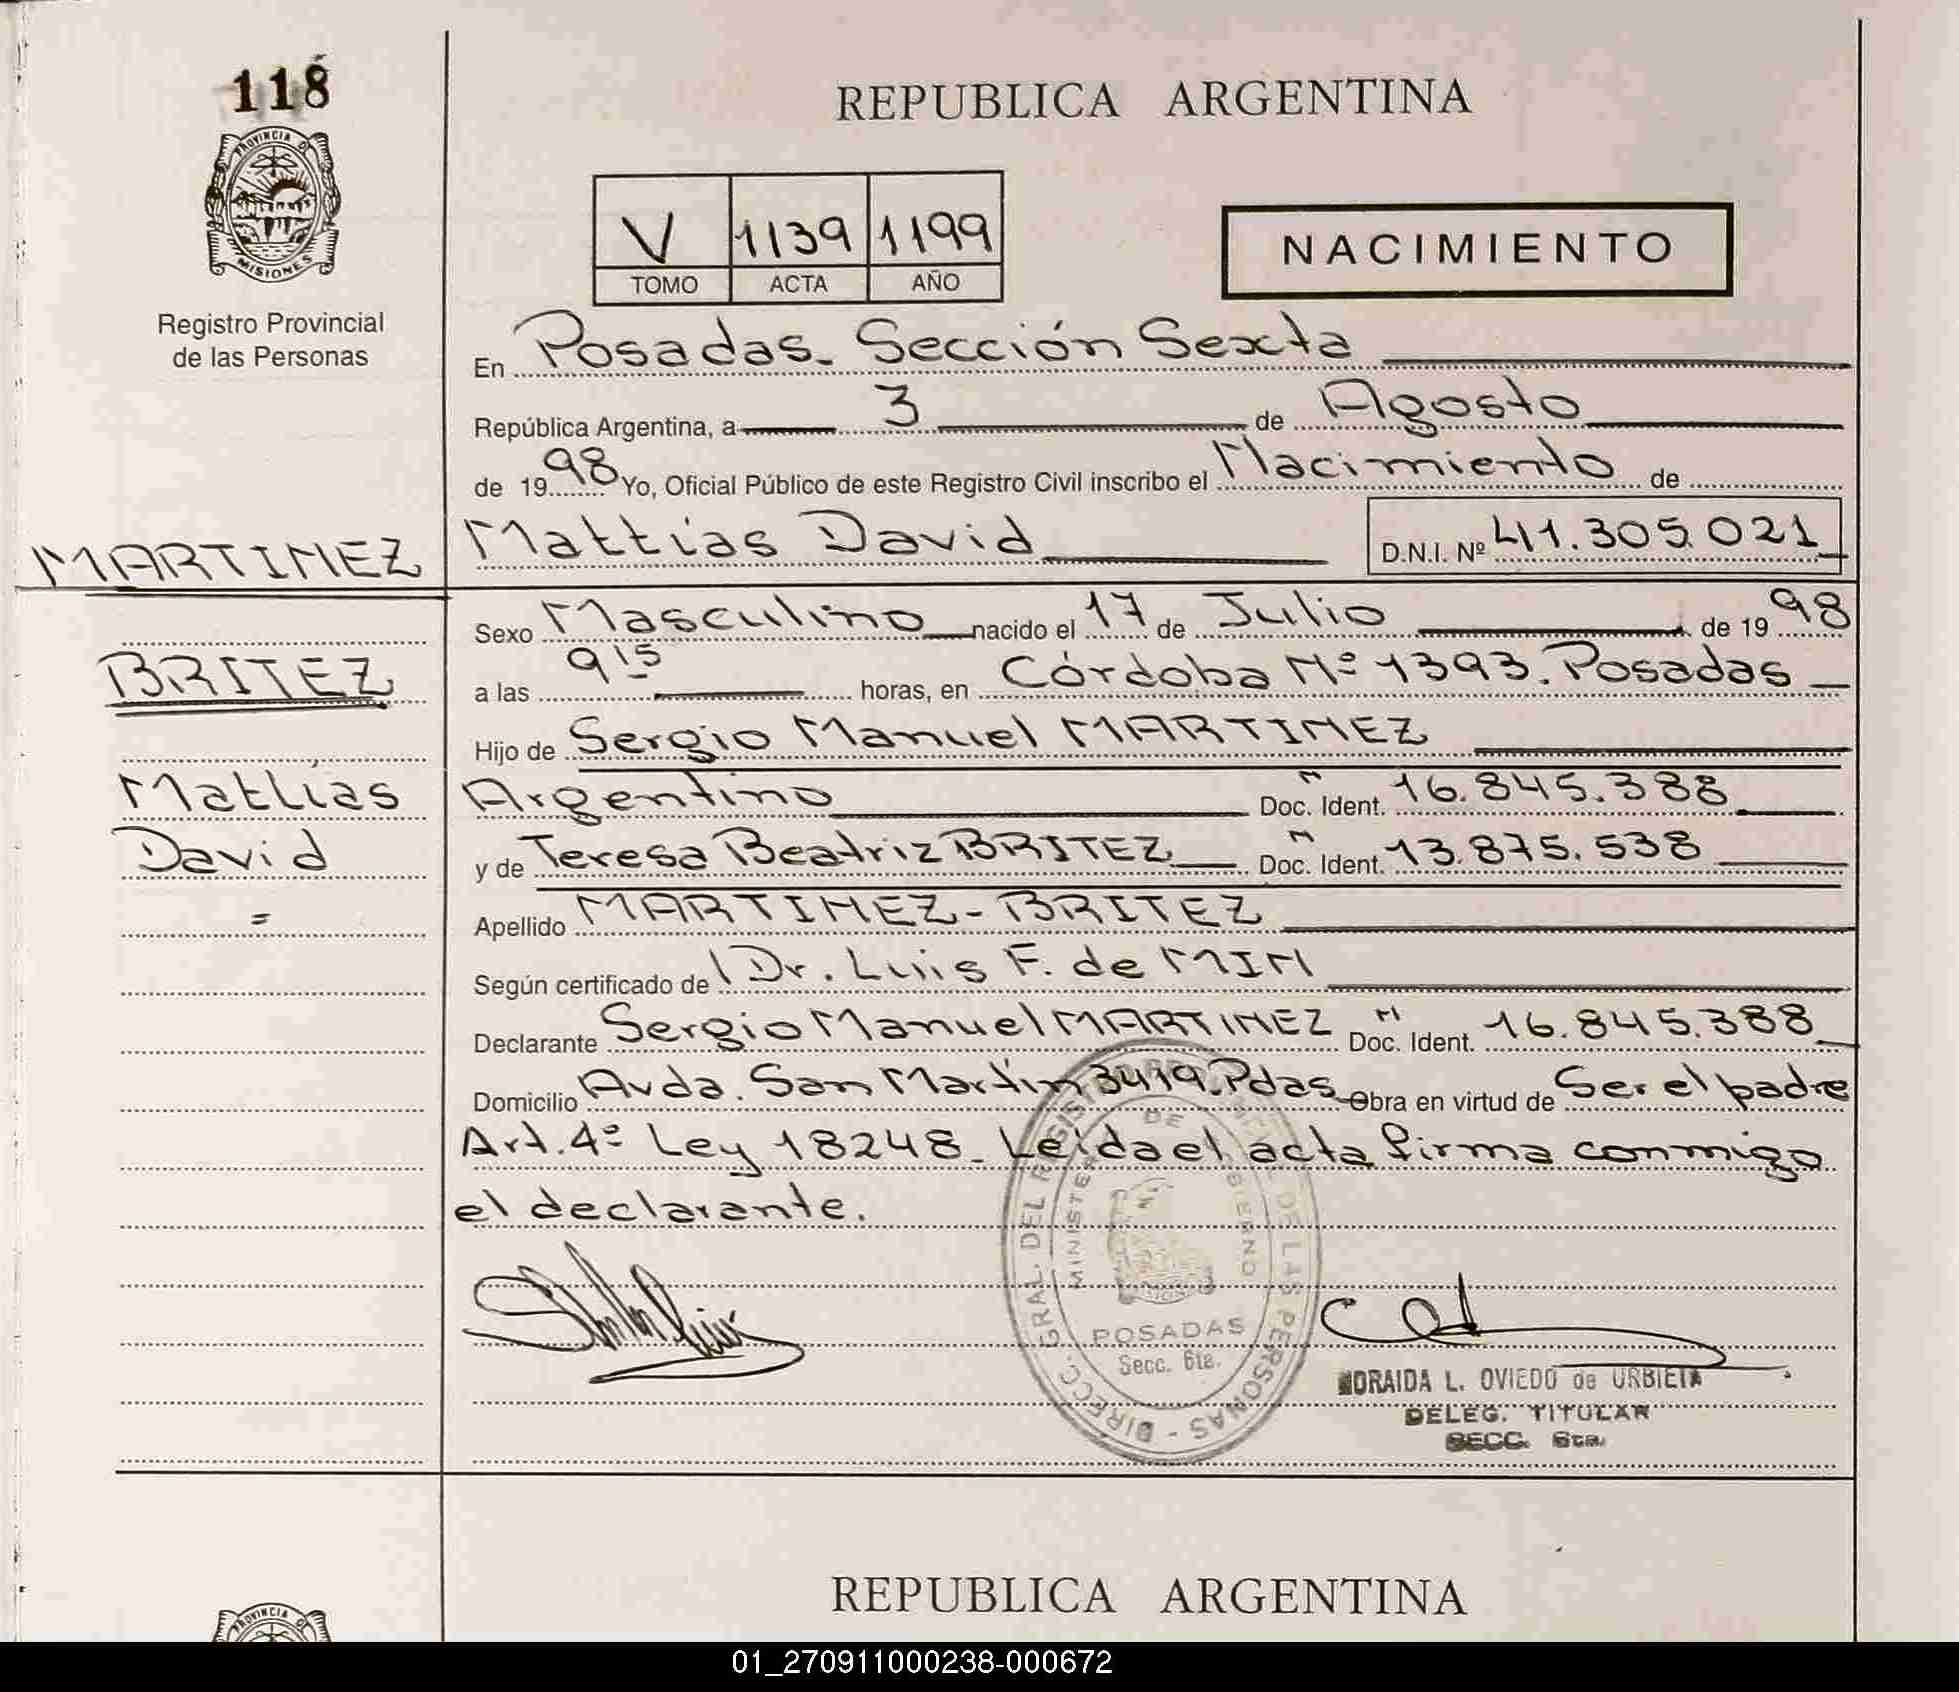 118
REPUBLICA ARGENTINA
PROVINCIA D
MISIONES
V 1139 1199
TOMO ACTA AÑO
NACIMIENTO
Registro Provincial
de las Personas
En Posadas. Sección Sexta
República Argentina, a 3 de Agosto
de 1998 Yo, Oficial Público de este Registro Civil inscribo el Nacimiento de
MARTINEZ
Mattías David D.N.I. Nº 41.305.021
Sexo Masculino nacido el 17 de Julio de 1998
BRITEZ
a las 9 15 horas, en Córdoba Nº 1393. Posadas
Hijo de Sergio Manuel MARTINEZ
Mattías
Argentino Doc. Ident. 16.845.388
David
y de Teresa Beatriz BRITEZ Doc. Ident. 13.875.538
=
Apellido MARTINEZ-BRITEZ
Según certificado de Dr. Luis F. de MIN
Declarante Sergio Manuel MARTINEZ Doc. Ident. 16.845.388
Domicilio Avda. San Martín 3419. Pdas. Obra en virtud de Ser el padre
Art. 4º Ley 18248. Leida el acta firma conmigo
el declarante.
DIRECC. GRAL. DEL REGISTRO DE LAS PERSONAS -
MINISTER DE BIERNO
POSADAS
Secc. 6ta.
NORAIDA L. OVIEDO de URBIETA
DELEG. TITULAR
SECC. 6ta.
REPUBLICA ARGENTINA
PROVINCIA D
01_270911000238-000672